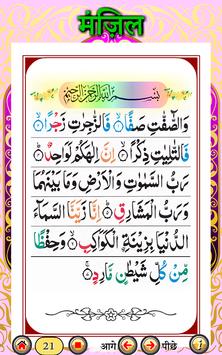 मंज़िल
بِسْمِ اللّٰهِ الرَّحْمٰنِ الرَّحِيْمِ
وَالصّٰٓفّٰتِ صَفًّا ۙ فَالزّٰجِرٰتِ زَجْرًا ۙ
فَالتّٰلِيٰتِ ذِكْرًا ۙ اِنَّ اِلٰهَكُمْ لَوَاحِدٌ ؕ
رَبُّ السَّمٰوٰتِ وَالْاَرْضِ وَمَا بَيْنَهُمَا
وَرَبُّ الْمَشَارِقِ ؕ اِنَّا زَيَّنَّا السَّمَآءَ
الدُّنْيَا بِزِيْنَةِ ۨالْكَوَاكِبِ ۙ وَحِفْظًا
مِّنْ كُلِّ شَيْطٰنٍ مَّارِدٍ ۚ
21 आगे पीछे i